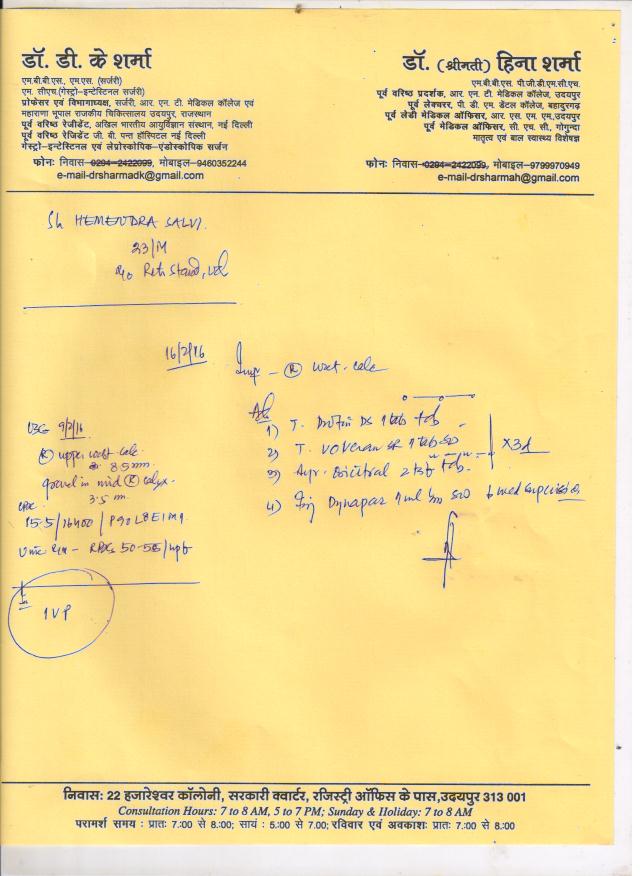 डॉ. डी. के शर्मा
एम.बी.बी.एस., एम.एस. (सर्जरी)
एम. सीएच.(गेस्ट्रो-इन्टेस्टिनल सर्जरी)
प्रोफेसर एवं विभागाध्यक्ष, सर्जरी, आर. एन. टी. मेडिकल कॉलेज एवं
महाराणा भूपाल राजकीय चिकित्सालय उदयपुर, राजस्थान
पूर्व वरिष्ठ रेजीडेंट, अखिल भारतीय आयुर्विज्ञान संस्थान, नई दिल्ली
पूर्व वरिष्ठ रेजिडेंट जी. बी. पन्त हॉस्पिटल नई दिल्ली
गेस्ट्रो-इन्टेस्टिनल एवं लेप्रोस्कोपिक-एंडोस्कोपिक सर्जन
फोनः निवास-0294-2422099, मोबाइल-9460352244
e-mail-drsharmadk@gmail.com
डॉ. (श्रीमती) हिना शर्मा
एम.बी.बी.एस. पी.जी.डी.एम.सी.एच.
पूर्व वरिष्ठ प्रदर्शक, आर. एन. टी. मेडिकल कॉलेज, उदयपुर
पूर्व लेक्चरर, पी. डी. एम. डेंटल कॉलेज, बहादुरगढ़
पूर्व लेडी मेडिकल ऑफिसर, आर. एस. एम. एम,उदयपुर
पूर्व मेडिकल ऑफिसर, सी. एच. सी., गोगुन्दा
मातृत्व एवं बाल स्वास्थ्य विशेषज्ञ
फोनः निवास-0294-2422099, मोबाइल-9799970949
e-mail-drsharmah@gmail.com
Sh HEMENDRA SALVI.
23/M
16/2/16
Imp - (R) uret. calc
USG 9/2/16
(R) upper uret calc
8.5 mm.
gravel in mid (R) calyx.
3.5 m
CBC
15.5/16400/P90L8E1M1
50-55/hpf
IVP
1) T.
DS 1 tab tds
2) T. VOVERAN SR 1 tab
x 3d
3) Syr.
tsf tds
4) Inj Dynapar 1 ml Im
निवास: 22 हजारेश्वर कॉलोनी, सरकारी क्वार्टर, रजिस्ट्री ऑफिस के पास,उदयपुर 313 001
Consultation Hours: 7 to 8 AM, 5 to 7 PM; Sunday & Holiday: 7 to 8 AM
परामर्श समय : प्रातः 7:00 से 8:00; सायं : 5:00 से 7.00; रविवार एवं अवकाशः प्रातः 7:00 से 8:00